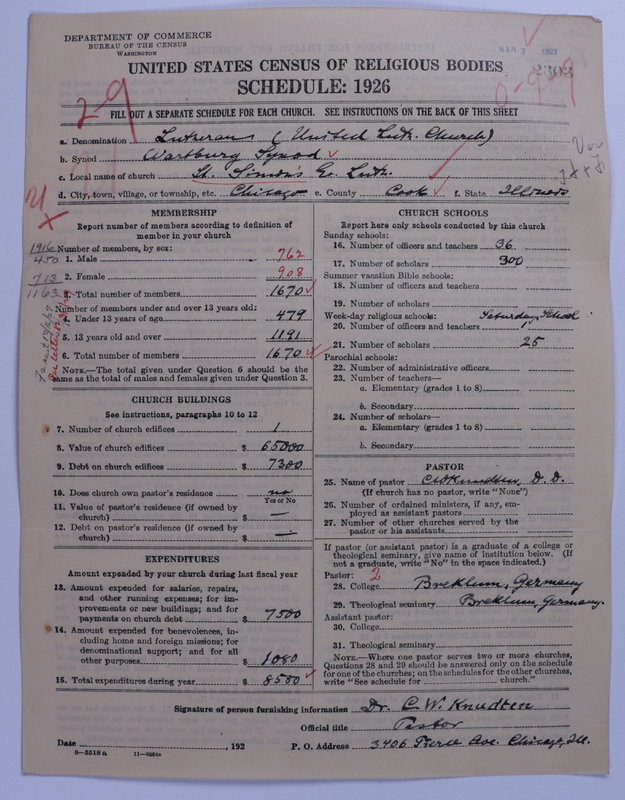 DEPARTMENT OF COMMERCE
BUREAU OF THE CENSUS
WASHINGTON
MAR 2 1927
2303
UNITED STATES CENSUS OF RELIGIOUS BODIES
SCHEDULE: 1926
2-9
0-9-29
FILL OUT A SEPARATE SCHEDULE FOR EACH CHURCH. SEE INSTRUCTIONS ON THE BACK OF THIS SHEET
a. Denomination Lutheran (United Luth. Church)
b. Synod Wartburg Synod
c. Local name of church St. Simon's Ev. Luth.
d. City, town, village, or township, etc. Chicago e. County Cook f. State Illinois
MEMBERSHIP
Report number of members according to definition of
member in your church
1916 Number of members, by sex:
450 1. Male 762
713 2. Female 908
1163 3. Total number of members 1670
Number of members under and over 13 years old:
4. Under 13 years of age 479
5. 13 years old and over 1191
6. Total number of members 1670
NOTE.—The total given under Question 6 should be the
same as the total of males and females given under Question 3.
CHURCH BUILDINGS
See instructions, paragraphs 10 to 12
7. Number of church edifices 1
8. Value of church edifices $ 65000
9. Debt on church edifices $ 7300
10. Does church own pastor's residence no
Yes or No
11. Value of pastor's residence (if owned by
church) $ —
12. Debt on pastor's residence (if owned by
church) $ —
EXPENDITURES
Amount expended by your church during last fiscal year
13. Amount expended for salaries, repairs,
and other running expenses; for im-
provements or new buildings; and for
payments on church debt $ 7500
14. Amount expended for benevolences, in-
cluding home and foreign missions; for
denominational support; and for all
other purposes $ 1080
15. Total expenditures during year $ 8580
CHURCH SCHOOLS
Report here only schools conducted by this church
Sunday schools:
16. Number of officers and teachers 36
17. Number of scholars 300
Summer vacation Bible schools:
18. Number of officers and teachers
19. Number of scholars
Week-day religious schools: Saturday School
20. Number of officers and teachers 1
21. Number of scholars 25
Parochial schools:
22. Number of administrative officers
23. Number of teachers—
a. Elementary (grades 1 to 8)
b. Secondary
24. Number of scholars—
a. Elementary (grades 1 to 8)
b. Secondary
PASTOR
25. Name of pastor C W Knudten, D. D.
(If church has no pastor, write "None")
26. Number of ordained ministers, if any, em-
ployed as assistant pastors
27. Number of other churches served by the
pastor or his assistants
If pastor (or assistant pastor) is a graduate of a college or
theological seminary, give name of institution below. (If
not a graduate, write "No" in the space indicated.)
Pastor: 2
28. College Breklum, Germany
29. Theological seminary Breklum, Germany.
Assistant pastor:
30. College
31. Theological seminary
NOTE.—Where one pastor serves two or more churches,
Questions 28 and 29 should be answered only on the schedule
for one of the churches; on the schedules for the other churches,
write "See schedule for church."
Signature of person furnishing information Dr. C. W. Knudten
Official title Pastor
Date , 192 P. O. Address 3406 Pierce Ave. Chicago, Ill.
8—5518 a 11—9054